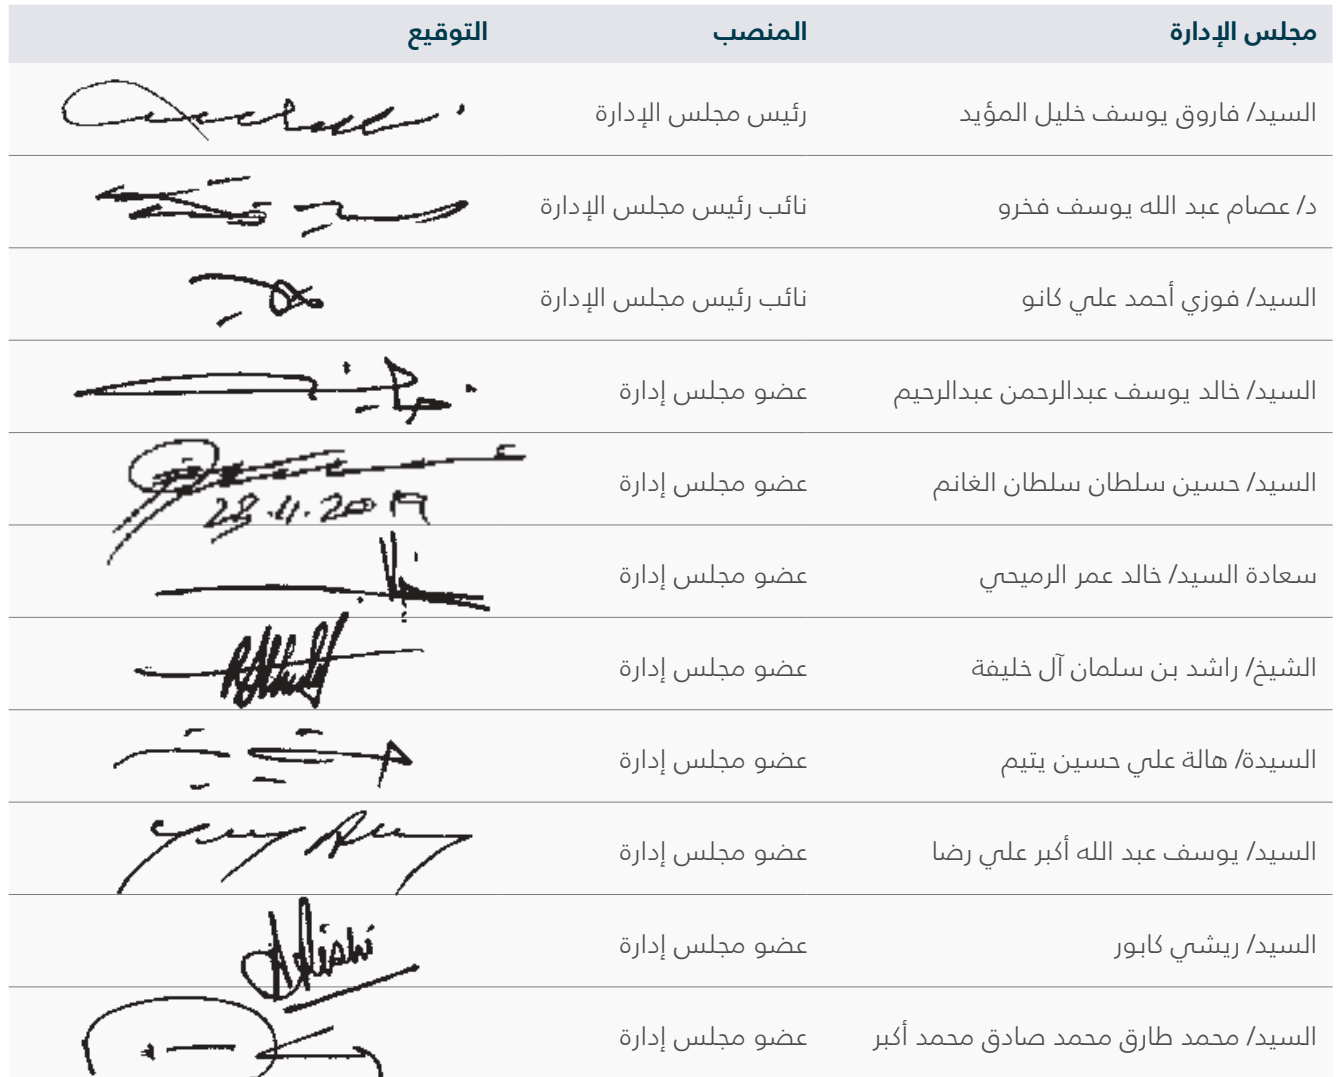 مجلس الإدارة المنصب التوقيع
السيد/ فاروق يوسف خليل المؤيد رئيس مجلس الإدارة
د/ عصام عبد الله يوسف فخرو نائب رئيس مجلس الإدارة
السيد/ فوزي أحمد علي كانو نائب رئيس مجلس الإدارة
السيد/ خالد يوسف عبدالرحمن عبدالرحيم عضو مجلس إدارة
السيد/ حسين سلطان سلطان الغانم عضو مجلس إدارة
28.11.2019
سعادة السيد/ خالد عمر الرميحي عضو مجلس إدارة
الشيخ/ راشد بن سلمان آل خليفة عضو مجلس إدارة
السيدة/ هالة علي حسين يتيم عضو مجلس إدارة
السيد/ يوسف عبد الله أكبر علي رضا عضو مجلس إدارة
السيد/ ريشي كابور عضو مجلس إدارة
السيد/ محمد طارق محمد صادق محمد أكبر عضو مجلس إدارة